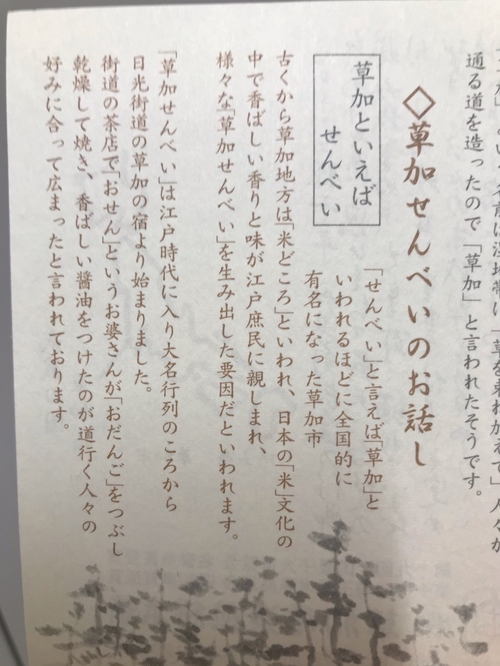 通る道を造ったので「草加」と言われたそうです。
◇草加せんべいのお話し
草加といえば
せんべい
「せんべい」と言えば「草加」と
いわれるほどに全国的に
有名になった草加市
古くから草加地方は「米どころ」といわれ、日本の「米」文化の
中で香ばしい香りと味が江戸庶民に親しまれ、
様々な「草加せんべい」を生み出した要因だといわれます。
「草加せんべい」は江戸時代に入り大名行列のころから
日光街道の草加の宿より始まりました。
街道の茶店で「おせん」というお婆さんが「おだんご」をつぶし
乾燥して焼き、香ばしい醤油をつけたのが道行く人々の
好みに合って広まったと言われております。